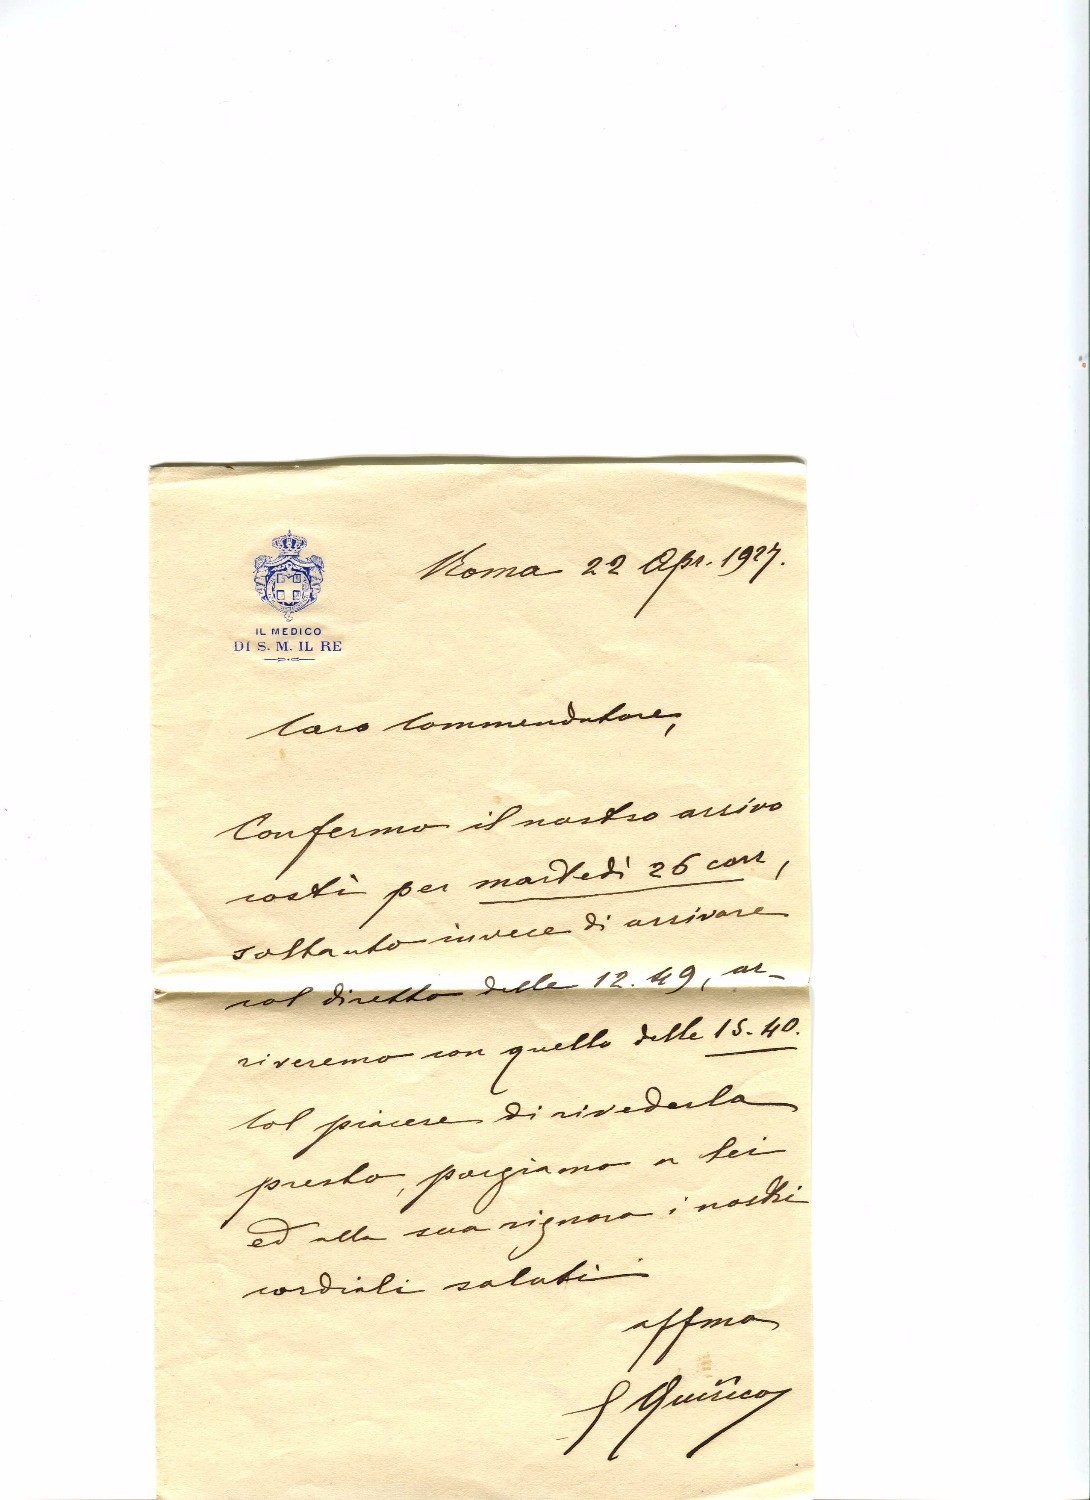 IL MEDICO
DI S. M. IL RE
Roma 22 Apr. 1927.
Caro Commendatore,
Confermo il nostro arrivo
costì per martedì 26 corr,
soltanto invece di arrivare
col diretto delle 12.49, ar-
riveremo con quello delle 15.40.
Col piacere di rivederla
presto, porgiamo a lei
ed alla sua signora i nostri
cordiali saluti
affmo
G Quirico